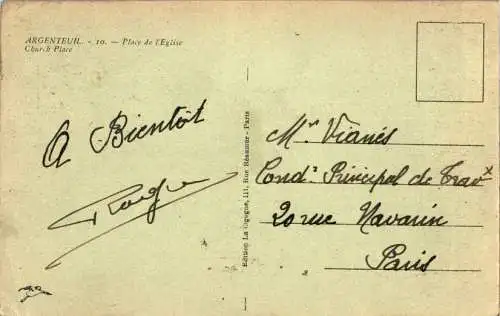 ARGENTEUIL. - 10. — Place de l'Eglise
Church Place
A Bientôt
Edition La Cigogne, 111, Rue Réaumur - Paris
Mr Vianès
Condr Principal de Travx
20 rue Navarin
Paris